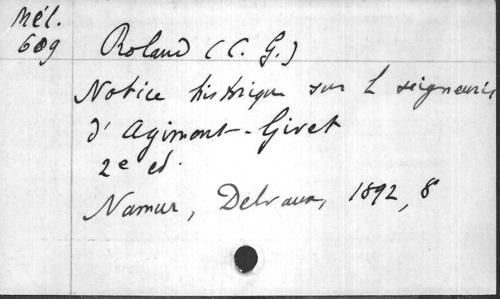 Mél.
609
Roland (C. G.)
Notice historique sur L seigneurie
d'Agimont-Givet
2e ed.
Namur, Delvaux, 1892, 8